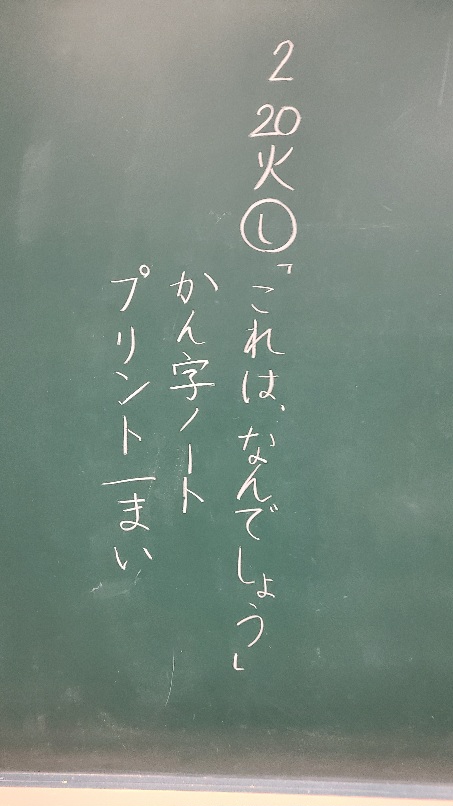 2 20 火 し 「これは、なんでしょう」
かん字ノート
プリント一まい